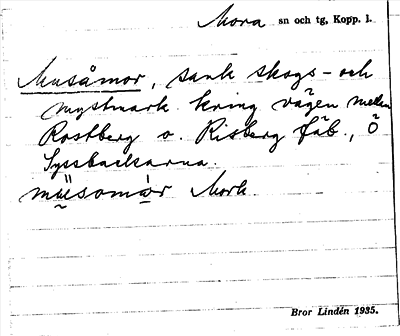 Mora sn och tg, Kopp. l.
Musåmor, sank skogs- och
myrmark kring vägen mellan
Rostberg o. Risberg fäb., Ö
Syssbackarna.
müsomår Mork.
Bror Lindén 1935.